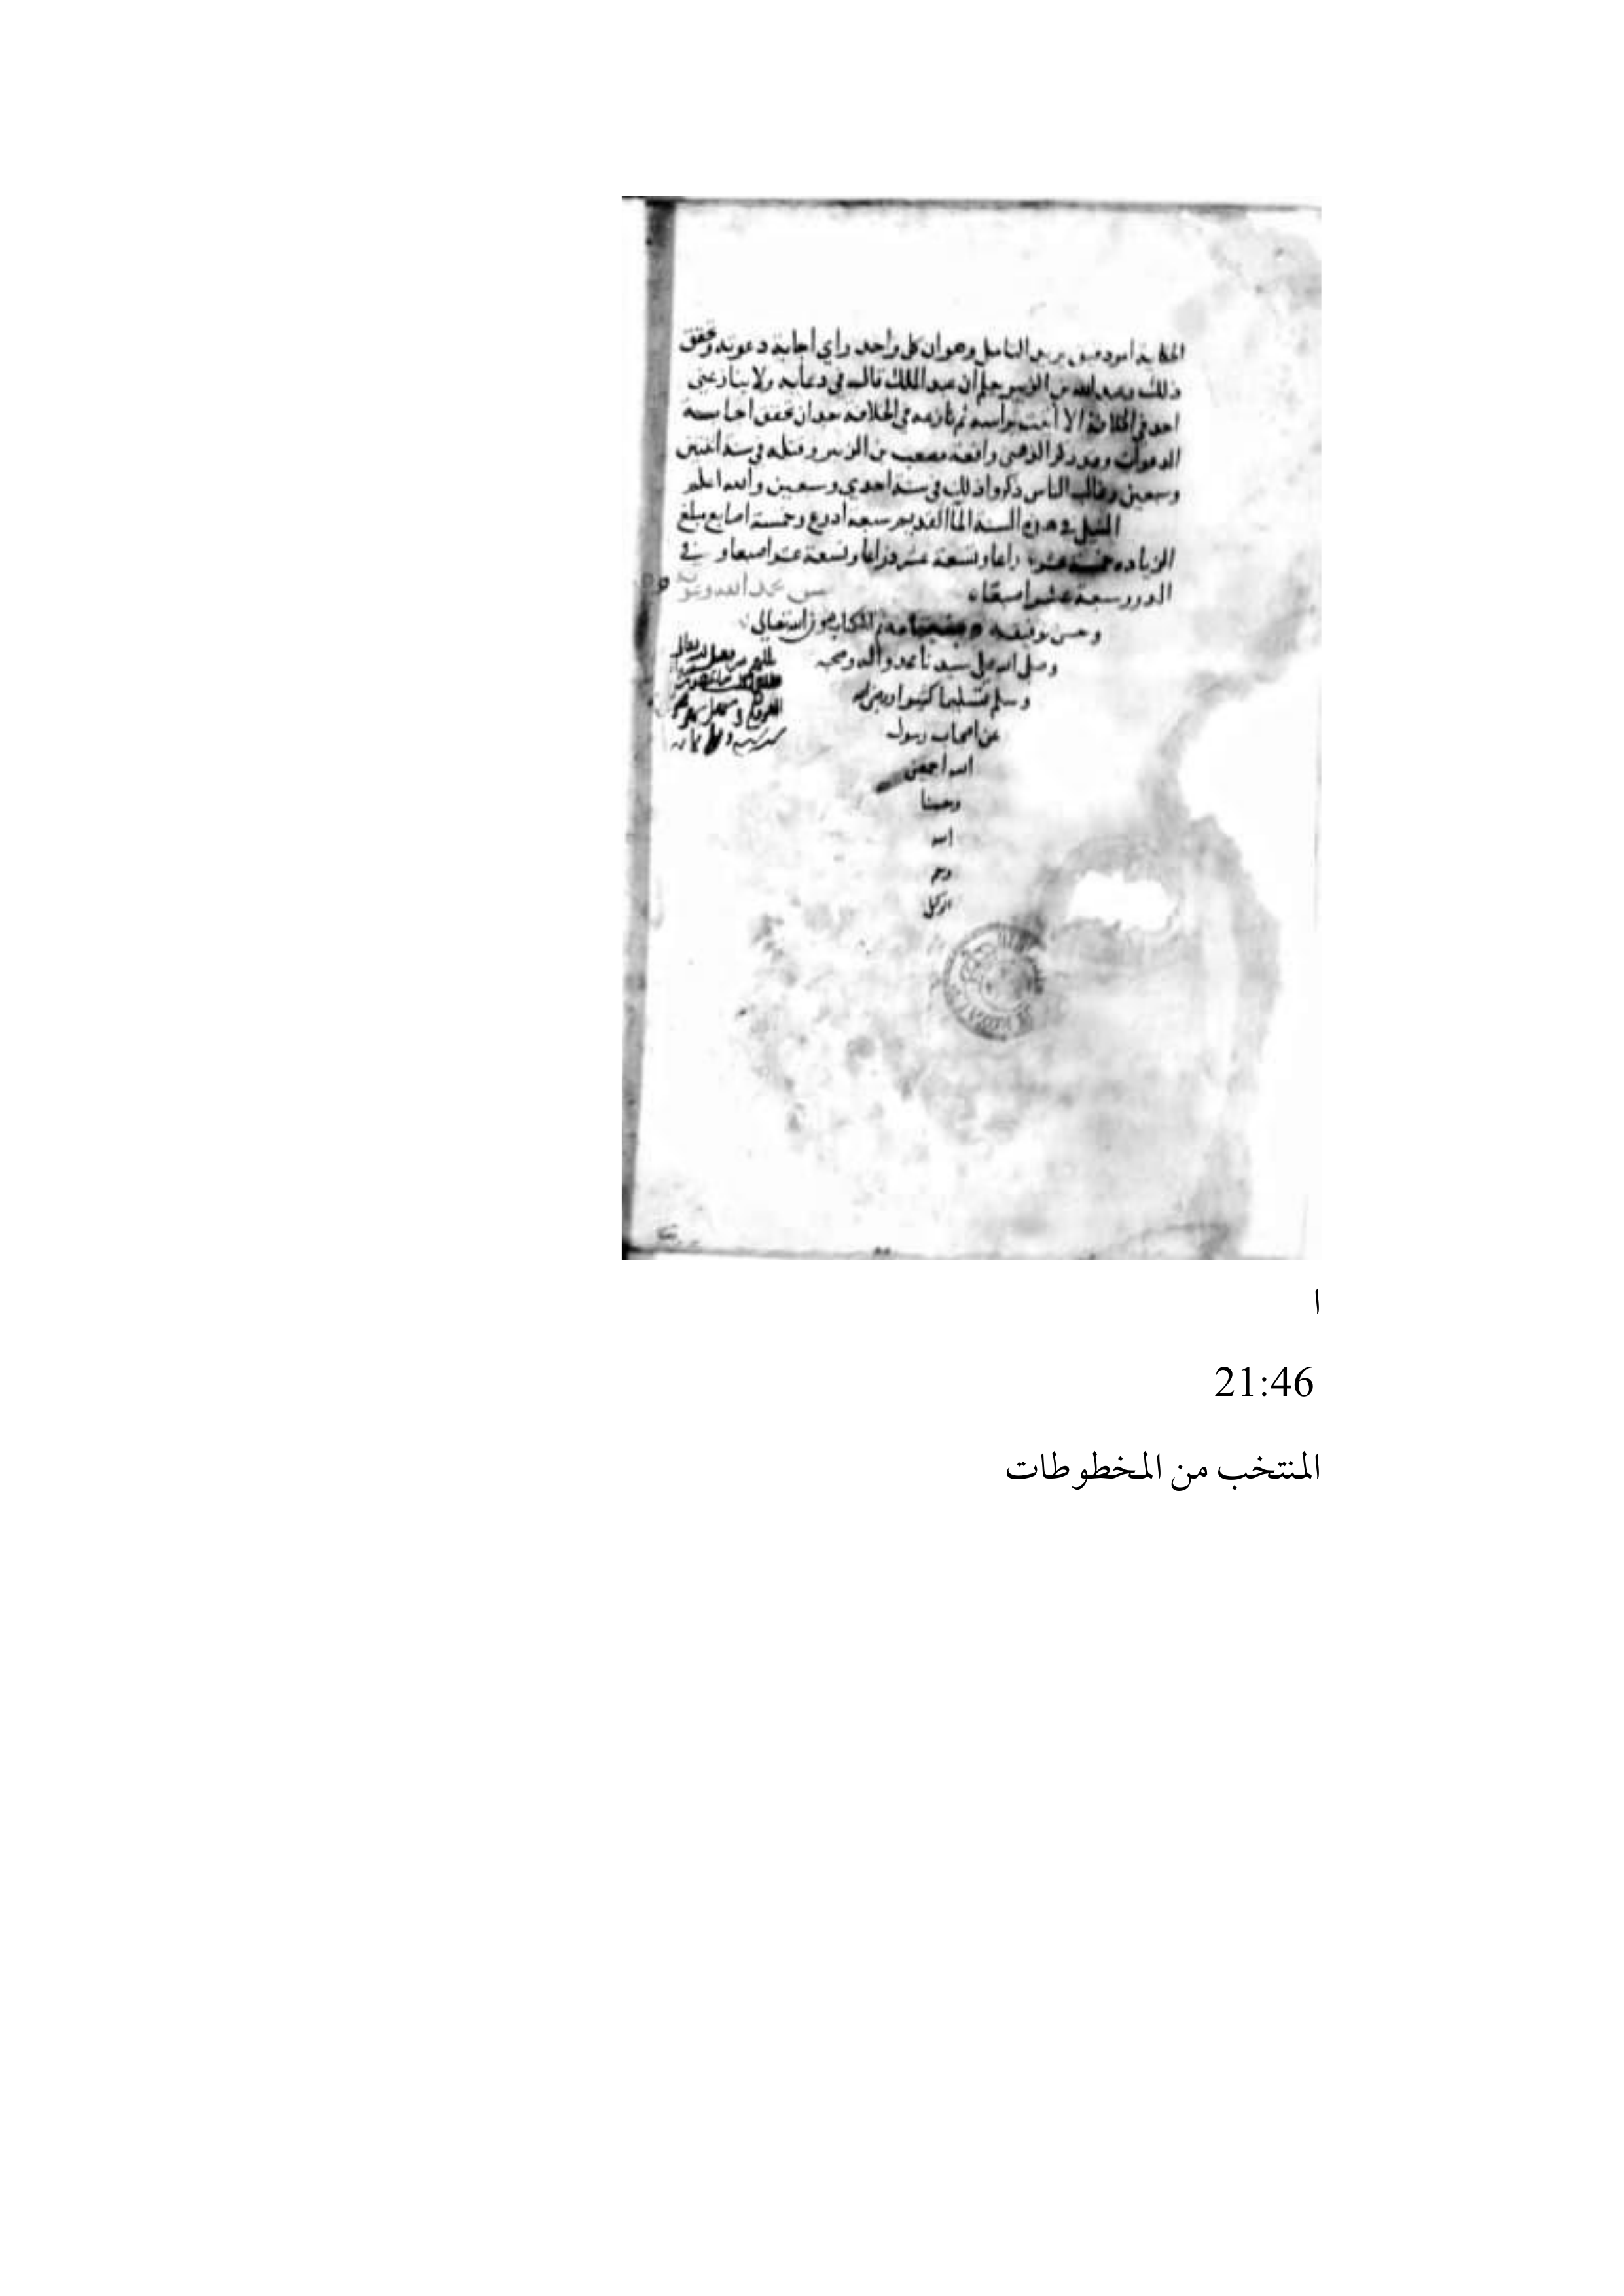 الحكاية امر دقيق يريد التامل وهو ان كل واحد راي اجابة دعوته وتحقق
ذلك وعبد الله بن الزبير علم ان عبد الملك قال في دعايه ولا ينازعني
احد في الخلافة الا اتيت براسه ثم نازعه في الخلافة بعد ان تحقق اجابة
الدعوات وقد ذكر الذهبي واقعة مصعب بن الزبير وقتله في سنة اثنتين
وسبعين وغالب الناس ذكروا ذلك في سنة احدي وسبعين والله اعلم
النيل في هذه السنة الماء القديم سبعة اذرع وخمسة اصابع مبلغ
الزياده خمسة عشر ذراعا وتسعة عشر ذراعا وتسعة عشر اصبعا و في
الدرر سبعة عشر اصبعا بحمد الله وعونه
وحسن توفيقه تم الكتاب بعون الله تعالى
وصلى الله على سيدنا محمد واله وصحبه
وسلم تسليما كثيرا ورضي الله
عن اصحاب رسول
الله اجمعين
وحسبنا
الله
ونعم
الوكيل
ا
21:46
المنتخب من المخطوطات